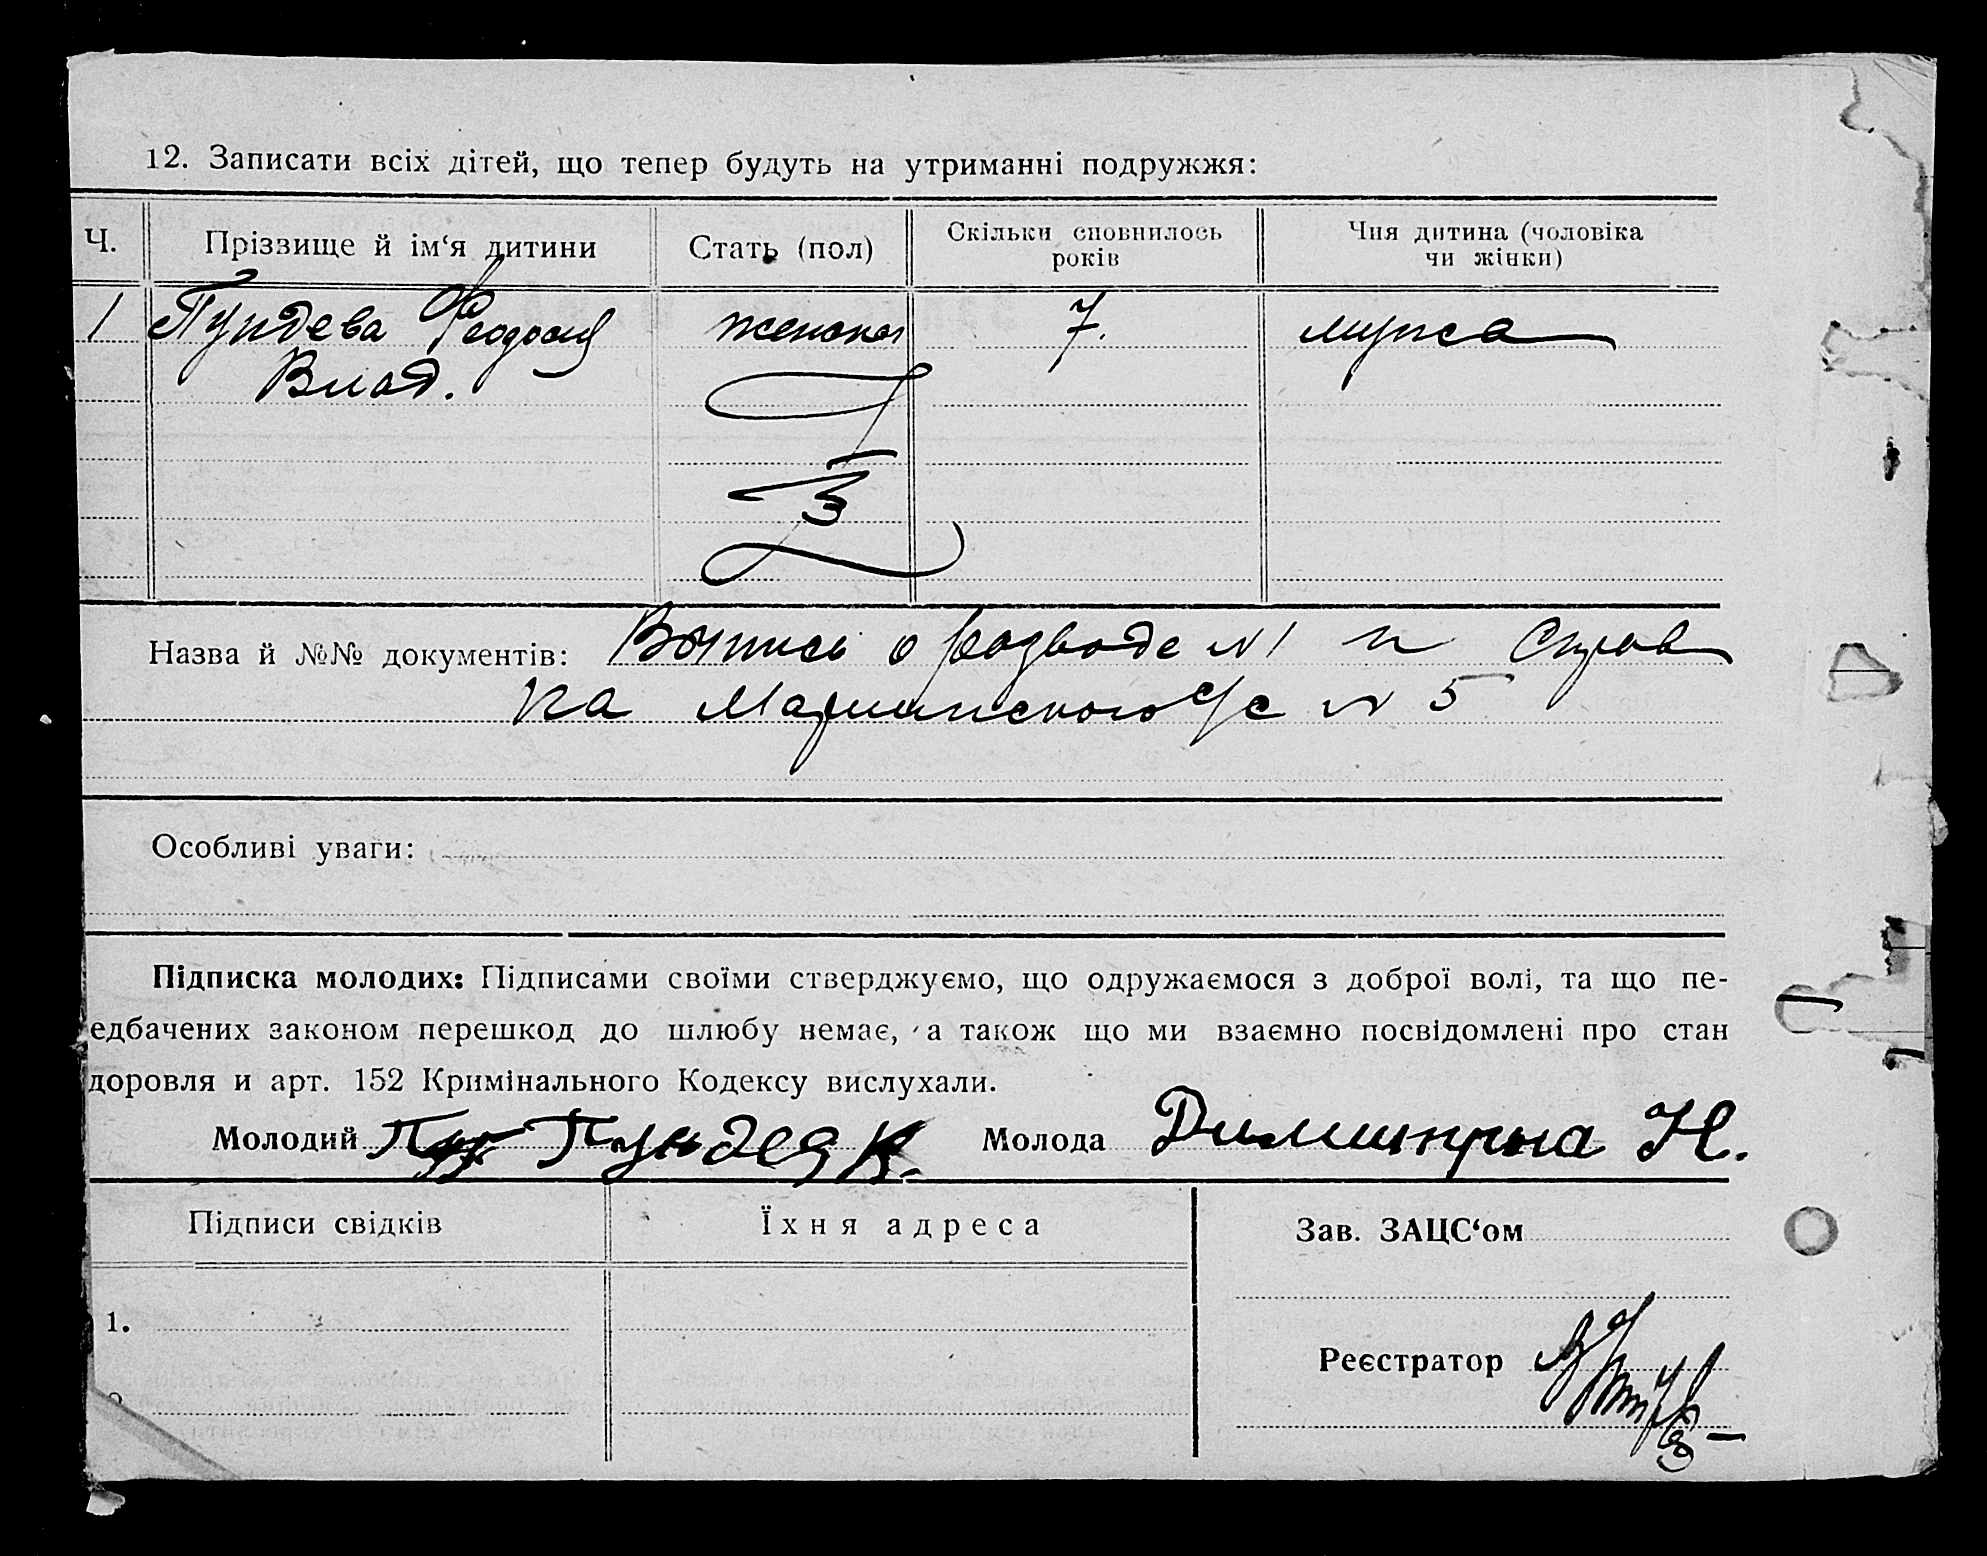 12. Записати всіх дітей, що тепер будуть на утриманні подружжя:
Ч. Прізвище й ім‘я дитини Стать (пол) Скільки сповнилось років Чия дитина (чоловіка чи жінки)
1 Пундева Феодосия женская 7. мужа
Влад.
Z
Назва й №№ документів: Выпись о разводе №1 и Справ
ка Мариинского с/с № 5
Особливі уваги:
Підписка молодих: Підписами своїми стверджуємо, що одружаємося з доброї волі, та що пе-
едбачених законом перешкод до шлюбу немає, а також що ми взаємно посвідомлені про стан
доровля и арт. 152 Кримінального Кодексу вислухали.
Молодий Пундев В. Молода Н.
Підписи свідків Їхня адреса Зав. ЗАЦС‘ом
1.
Реєстратор
2